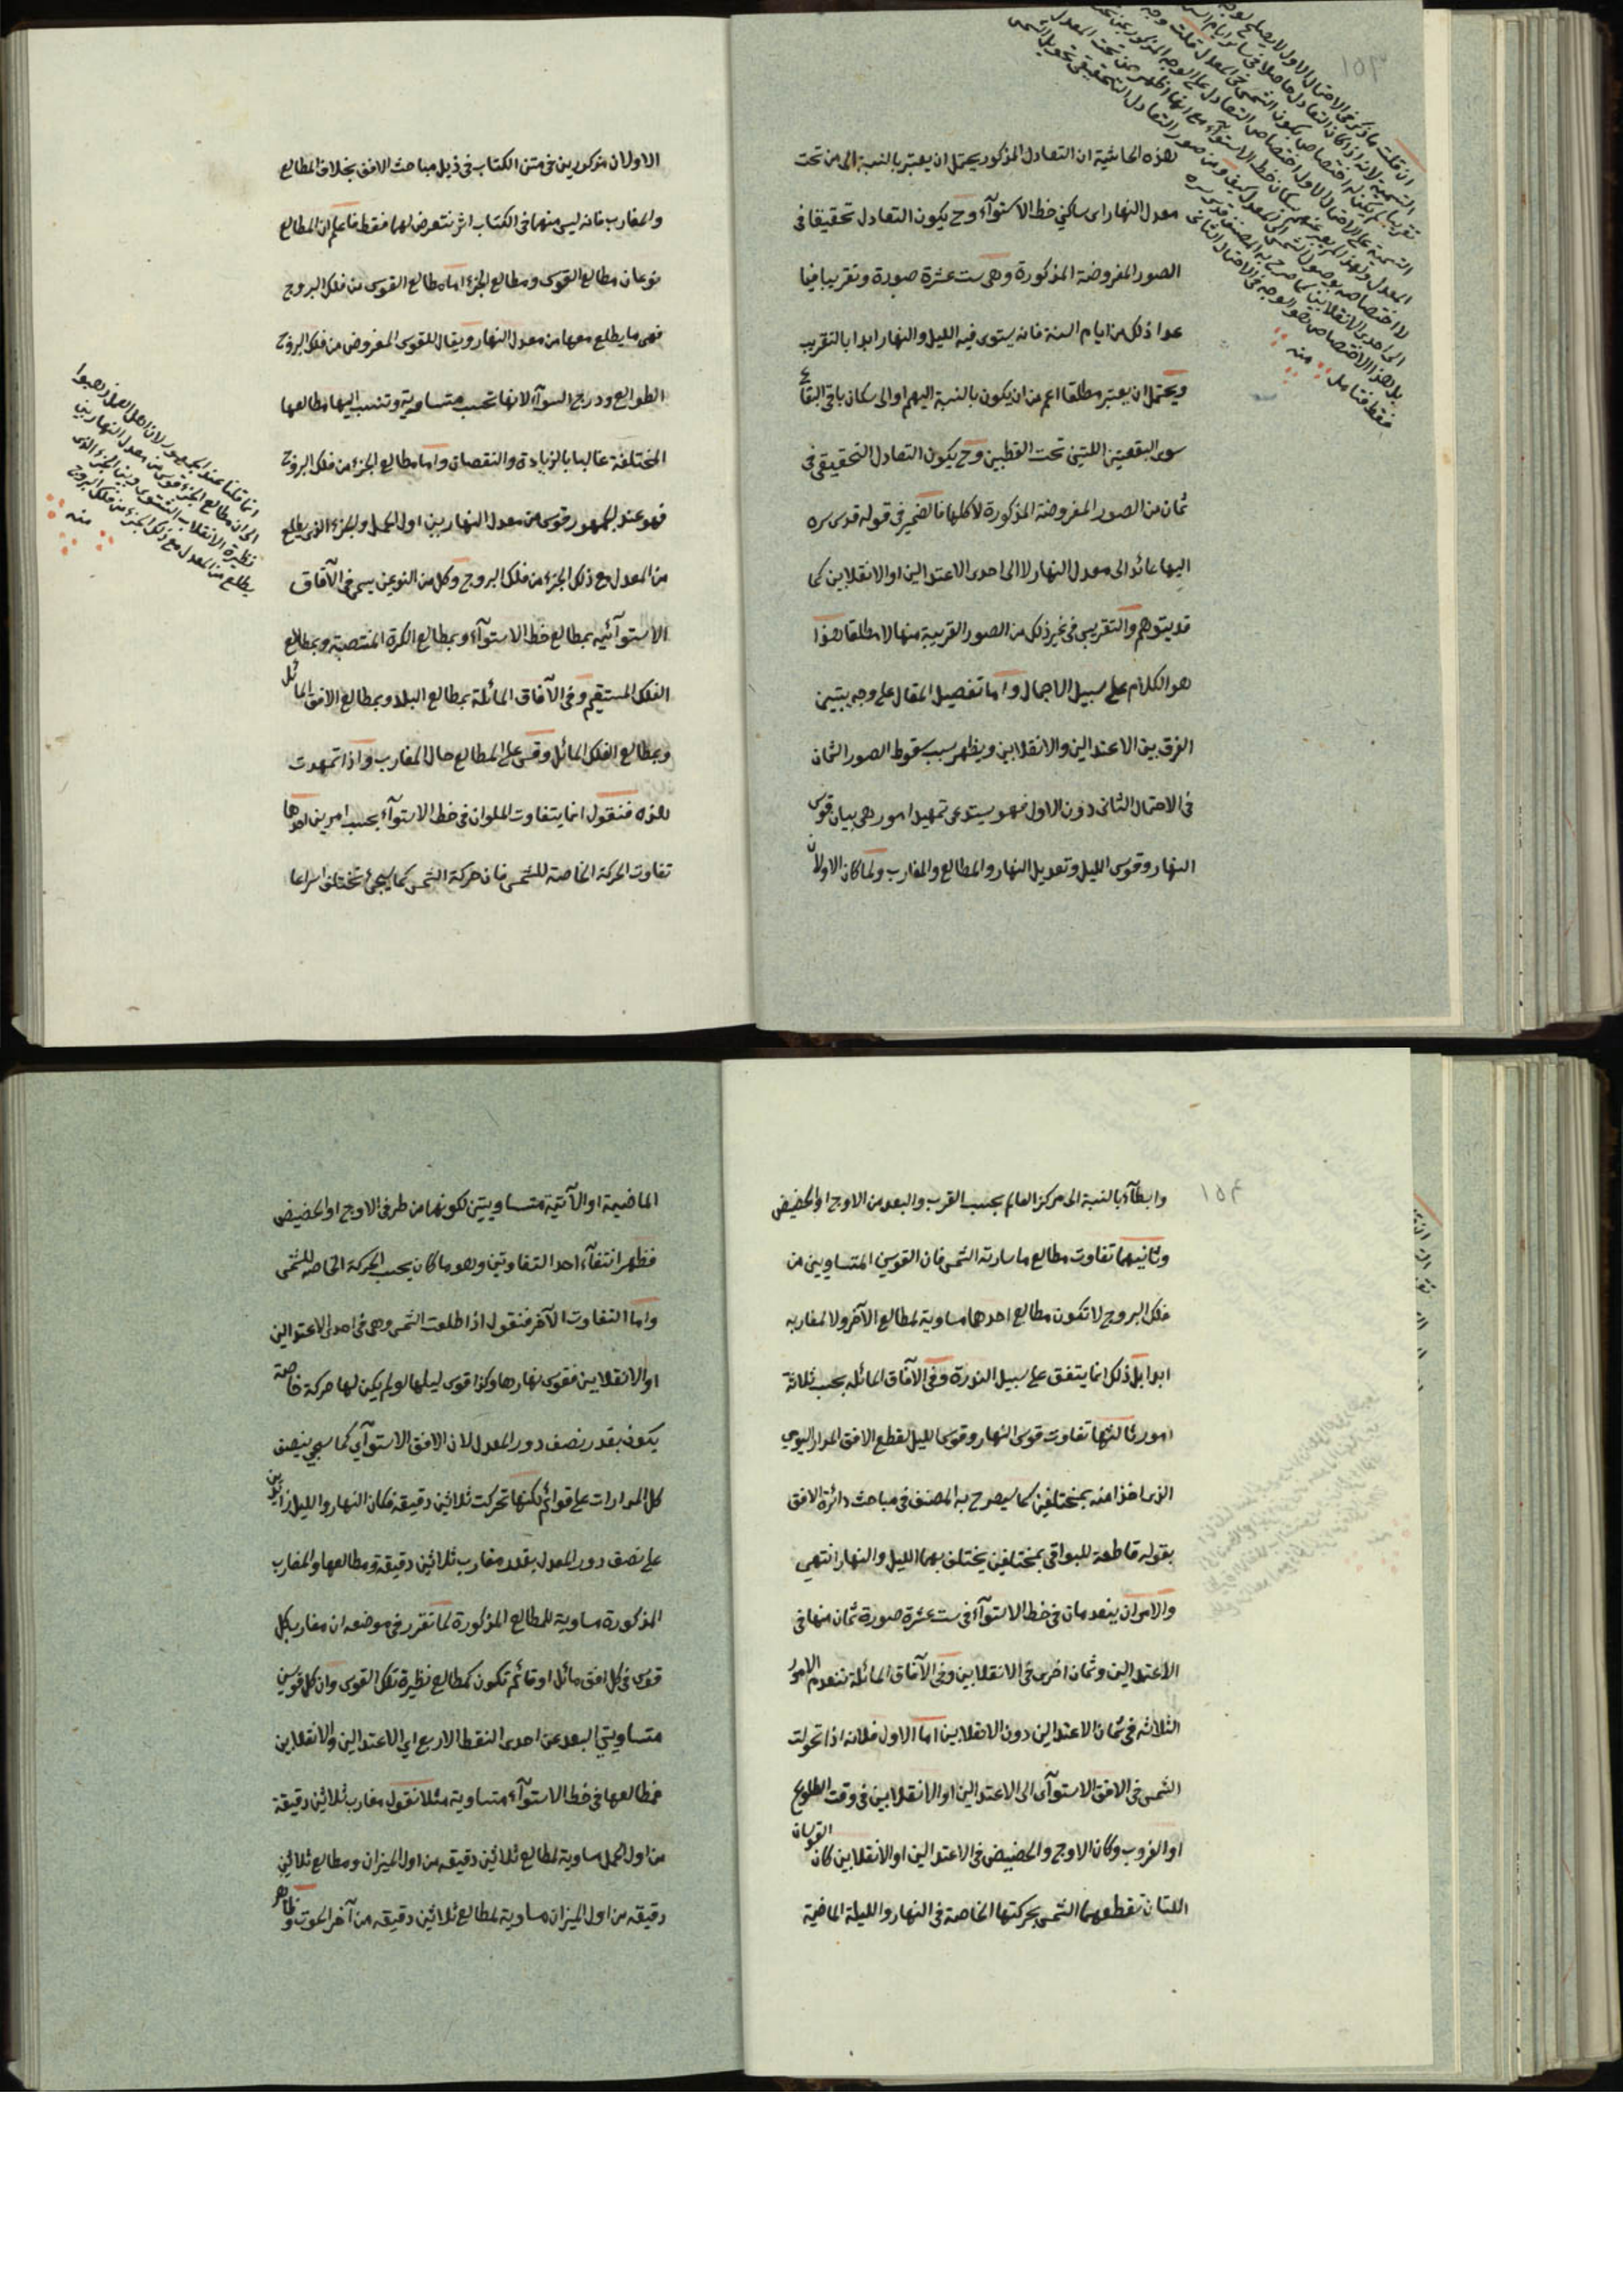 ١٥٣
هذه الحاشية ان التعادل المذكور يحتمل ان يعتبر بالنسبة الى من تحت
معدل النهار اى ساكنى خط الاستوآء وح يكون التعادل تحقيقا فى
الصور المفروضة المذكورة وهى ست عشرة صورة وتقريبا فيا
عدا ذلك من ايام السنة فانه يستوى فيه الليل والنهار ابدا بالتقريب
ويحتمل ان يعتبر مطلقا اعم من ان يكون بالنسبة اليهم او الى سكان باقى البقاع
سوى البقعتين اللتين تحت القطبين وح يكون التعادل التحقيقى فى
ثمان من الصور المفروضة المذكورة لا كلها فالضمير فى قوله قدس سره
اليها عائد الى معدل النهار لا الى احدى الاعتدالين او الانقلابين كما
قد يتوهم والتقريبى فى غير ذلك من الصور القريبة منها لا مطلقا هذا
هو الكلام على سبيل الاجمال واما تفصيل المقال على وجه يتبين
الفرق بين الاعتدالين والانقلابين ويظهر سبب سقوط الصور الثمان
فى الاحتمال الثانى دون الاول فهو يستدعى تمهيد امور هى بيان قوس
النهار وقوس الليل وتعديل النهار والمطالع والمغارب ولما كان الاولان
ان قلت ما ذكر فى الاحتمال الاول لا يصلح لوجه
التسمية لانه اذا كان التعادل حاصلا فى سائر ايام السنة
تقريبا لم يكن له اختصاص بكون الشمس فى المعدل قلت وجه
التسمية على الاحتمال الاول اختصاص التعادل على الوجه المذكور بمن تحت
المعدل ولهذا لم يعبر عنهم بسكان خط الاستوآء مع انها اظهر ممن تحت المعدل
لا اختصاصه بوصول الشمس الى المعدل كيف ومن صور التعادل التحقيقى تحويل الشمس
الى احدى الانقلابين كما صرح به المصنف قدس سره
بل هذا الاختصاص هو الوجه فى الاحتمال الثانى
فقط فتامل منه
الاولان مذكورين فى متن الكتاب فى ذيل مباحث الافق بخلاف المطالع
والمغارب فانه ليس منهما فى الكتاب اثر نتعرض لهما فقط فاعلم ان المطالع
نوعان مطالع القوس ومطالع الجزء اما مطالع القوس من فلك البروج
فهى ما يطلع معها من معدل النهار ويقال للقوس المفروض من فلك البروج
الطوالع ودرج السوآء لانها تحسب متساوية وتنسب اليها مطالعها
المختلفة غالبا بالزيادة والنقصان واما مطالع الجزء من فلك البروج
فهو عند الجمهور قوس من معدل النهار بين اول الحمل والجزء الذى يطلع
من المعدل مع ذلك الجزء من فلك البروج وكل من النوعين يسمى فى الآفاق
الاستوآئيه بمطالع خط الاستوآء وبمطالع الكرة المنتصبة وبمطالع
الفلك المستقيم وفى الآفاق المائلة بمطالع البلد وبمطالع الافق المائل
وبمطالع الفلك المائل وقس على المطالع حال المغارب واذا تمهدت
هذه فنقول انما يتفاوت الملوان فى خط الاستوآء بحسب امرين احدهما
تفاوت الحركة الخاصة للشمس فان حركة الشمس كما سيجئ تختلف اسراعا
انما قلنا عند الجمهور لان اهل العمل ذهبوا
الى ان مطالع الجزء قوس من معدل النهار بين
نظيرة الانقلاب الشتوى وبين الجزء الذى
يطلع من المعدل مع ذلك الجزء من فلك البروج
منه
١٥٤
وابطآء بالنسبة الى مركز العالم بحسب القرب والبعد من الاوج او الحضيض
وثانيهما تفاوت مطالع ما سارته الشمس فان القوسين المتساويين من
فلك البروج لا تكون مطالع احدهما مساوية لمطالع الآخر ولا لمغاربه
ابدا بل ذلك انما يتفق على سبيل الندرة وفى الآفاق المائله بحسب ثلاثة
امور ثالثها تفاوت قوسى النهار وقوس الليل لقطع الافق المدار اليومى
الذى اخذا منه بمختلفين كما سيصرح به المصنف فى مباحث دائرة الافق
بقوله قاطعة للبواقى بمختلفين يختلف بهما الليل والنهار انتهى
والامران ينعدمان فى خط الاستوآء فى ست عشرة صورة ثمان منها فى
الاعتدالين وثمان اخرى فى الانقلابين وفى الآفاق المائلة تنعدم الامور
الثلاثه فى ثمان الاعتدالين دون الانقلابين اما الاول فلانه اذا تحولت
الشمس فى الافق الاستوآى الى الاعتدالين او الانقلابين فى وقت الطلوع
او الغروب وكان الاوج والحضيض فى الاعتدالين او الانقلابين كان القوسان
اللتان تقطعهما الشمس بحركتها الخاصة فى النهار والليلة الماضية
الماضية او الآتية متساويتين لكونهما من طرفى الاوج او الحضيض
فظهر انتفآء احد التفاوتين وهو ما كان بحسب الحركة الخاصه للشمس
واما التفاوت الآخر فنقول اذا طلعت الشمس وهى فى احدى الاعتدالين
او الانقلابين فقوس نهارها وكذا قوس ليلها لو لم يكن لها حركة خاصة
يكون بقدر نصف دور المعدل لان الافق الاستوآى كما سيجئ ينصف
كل المدارات على قوائم لكنها تحركت ثلاثين دقيقة فكان النهار والليل زائدين
على نصف دور المعدل بقدر مغارب ثلاثين دقيقة ومطالعها والمغارب
المذكورة مساوية للمطالع المذكورة لما تقرر فى موضعه ان مغارب كل
قوس فى كل افق مائل او قائم تكون كمطالع نظيرة تلك القوس وان كل قوسين
متساويتى البعد عن احدى النقط الاربع اى الاعتدالين والانقلابين
فمطالعها فى خط الاستوآء متساوية مثلا نقول مغارب ثلاثين دقيقة
من اول الحمل مساوية لمطالع ثلاثين دقيقه من اول الميزان ومطالع ثلاثين
دقيقه من اول الميزان مساوية لمطالع ثلاثين دقيقه من آخر الحوت وظاهر